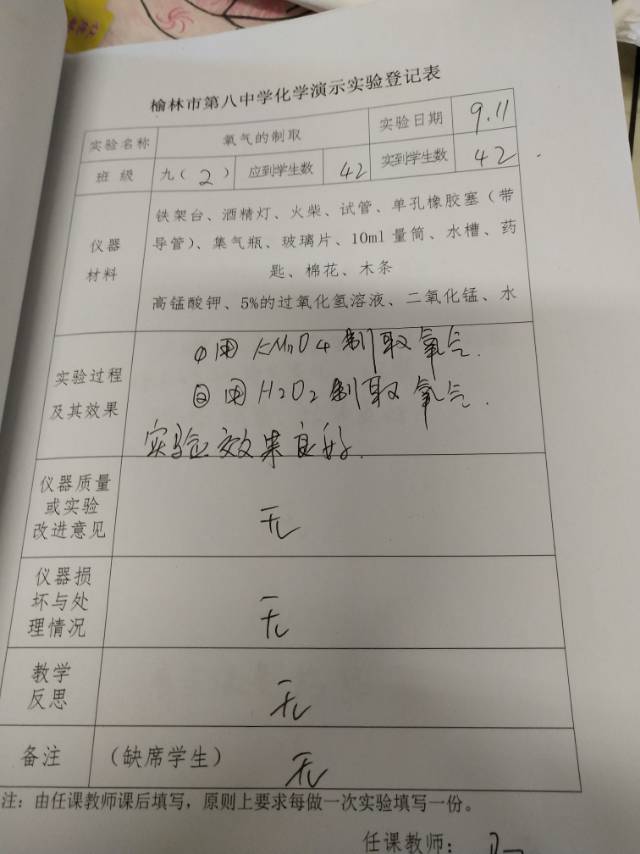 榆林市第八中学化学演示实验登记表
实验名称 氧气的制取 实验日期 9.11
班 级 九( 2 ) 应到学生数 42 实到学生数 42
仪器材料
铁架台、酒精灯、火柴、试管、单孔橡胶塞（带
导管）、集气瓶、玻璃片、10ml 量筒、水槽、药
匙、棉花、木条
高锰酸钾、5%的过氧化氢溶液、二氧化锰、水
实验过程
及其效果
①用 KMnO4 制取氧气.
②用 H2O2 制取氧气.
实验效果良好.
仪器质量
或实验
改进意见
无
仪器损
坏与处
理情况
无
教学
反思
无
备注 （缺席学生） 无
注：由任课教师课后填写，原则上要求每做一次实验填写一份。
任课教师：